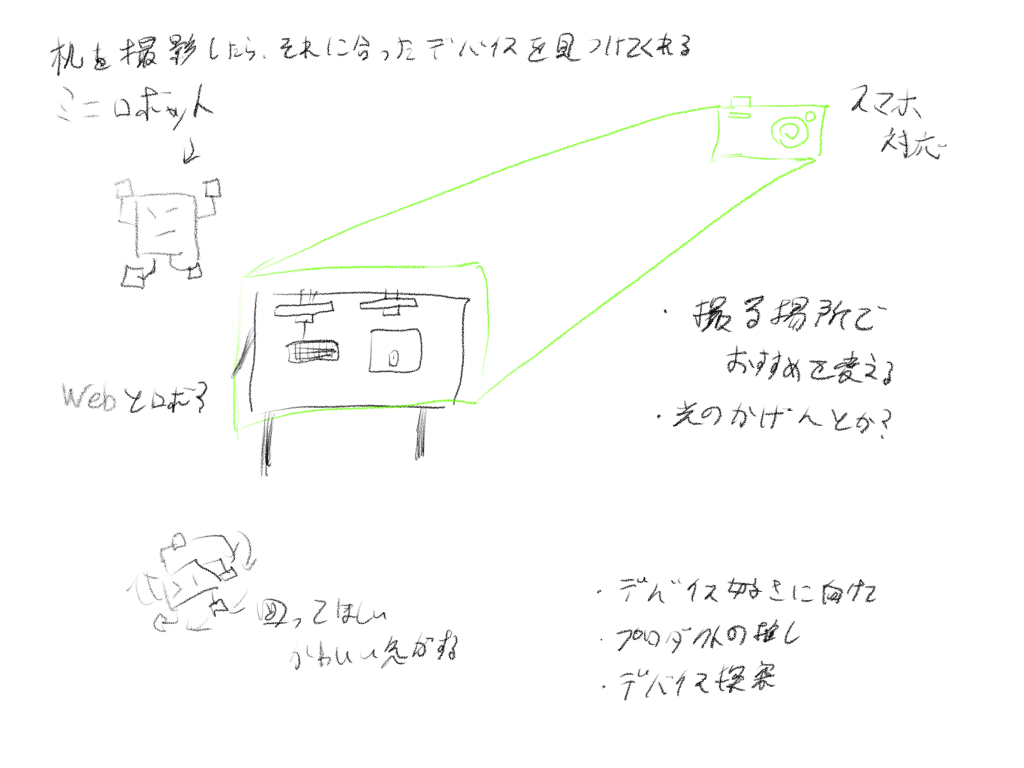 机を撮影したら、それに合ったデバイスを見つけてくれる
ミニロボット
スマホ
対応
・撮る場所で
おすすめを変える
・光のかげんとか?
Webとロボ?
回ってほしい
かわいい気がする
・デバイス好きに向けて
・プロダクトの推し
・デバイス探索